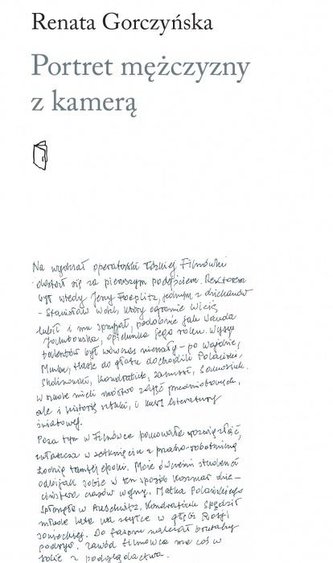 Renata Gorczyńska
Portret mężczyzny
z kamerą
Na wydział operatorski łódzkiej Filmówki
dostał się za pierwszym podejściem. Rektorem
był wtedy Jerzy Toeplitz, jednym z dziekanów
- Stanisław Wohl, który ogromnie Wicia
lubił i mu sprzyjał, podobnie jak Wanda
Jakubowska, opiekunka jego roku. Wysyp
talentów był wówczas niemały - po Wajdzie,
Munku, Hasie do głosu dochodzili Polański,
Skolimowski, Kondratiuk, Zanussi,
W szkole mieli mnóstwo zajęć przedmiotowych,
ale i historię sztuki, i kurs literatury
światowej.
Poza tym w Filmówce panowała
zwłaszcza w zetknięciu z szaro-robotniczą
Łodzią tamtej epoki. Może ówcześni studenci
odbijali sobie w ten sposób koszmar dzie-
ciństwa czasów wojny. Matka Polańskiego
zginęła w Auschwitz, Kondratiuk spędził
młode lata na zsyłce w głębi Rosji
sowieckiej. Do fasonu należał brutalny
podryw. Zawód filmowca ma coś w
sobie z podglądactwa.